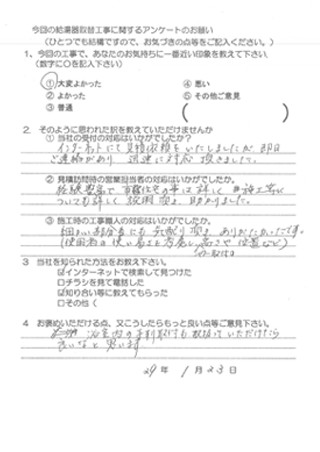 今回の給湯器取替工事に関するアンケートのお願い
(ひとつでも結構ですので、お気づきの点等をご記入ください。)
1、今回の工事で、あなたのお気持ちに一番近い印象を教えて下さい。
(数字に〇を記入下さい)
①大変よかった ④悪い
②よかった ⑤その他ご意見
③普通 ( )
2、そのように思われた訳を教えていただけませんか
①当社の受付の対応はいかがでしたか。
インターネットにて見積依頼をいたしましたが即日
ご連絡があり 迅速に対応頂きました。
②見積訪問時の営業担当者の対応はいかがでしたか。
経験豊富で 住宅の事は詳しく 施工等に
ついても詳しく説明頂き、助かりました。
③施工時の工事職人の対応はいかがでしたか。
細かい部分にも気配り頂き ありがたかったです。
(使用者の使い易さを考慮し高さや位置など)
3 当社を知られた方法をお教え下さい。
☑インターネットで検索して見つけた
□チラシを見て電話した
☑知り合い等に教えてもらった
□その他(
4 お褒めいただける点、又こうしたらもっと良い点等ご意見下さい。
浴室内の手すり取付も取扱っていただけたら
良いなと思います
29年 1月23日